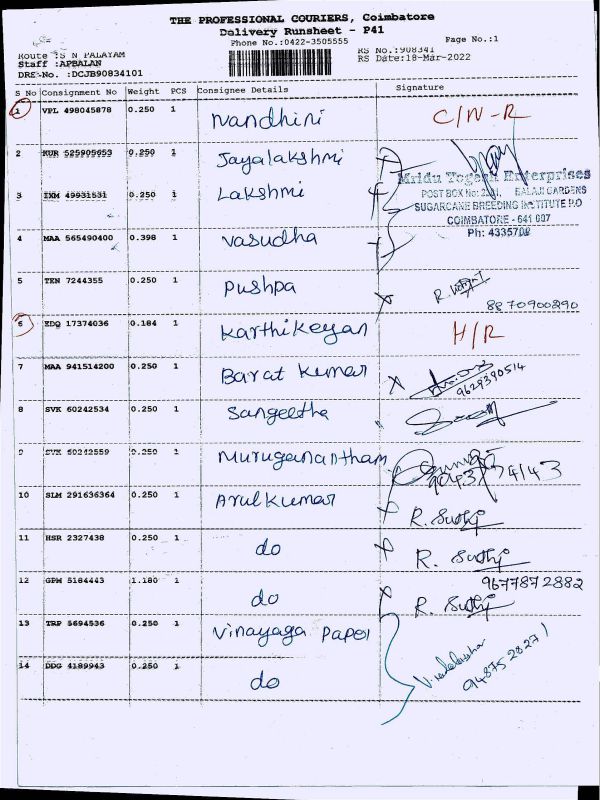 THE PROFESSIONAL COURIERS, Coimbatore
Delivery Runsheet - P41
Phone No.:0422-3505555 Page No.:1
Route :S N PALAYAM RS No.:908341
Staff :APBALAN RS Date:18-Mar-2022
DRS-No. :DCJB90834101
S No Consignment No Weight PCS Consignee Details Signature
1 VPL 498045878 0.250 1 Nandhini C/N-R
2 KUR 525905653 0.250 1 Jayalakshmi
Mridu Enterprises
3 IXM 49931531 0.250 1 Lakshmi
POST BOX No: BALAJI GARDENS
SUGARCANE BREEDING INSTITUTE P.O
COIMBATORE - 641 007
4 MAA 565490400 0.398 1 Vasudha
Ph: 4335708
5 TEN 7244355 0.250 1 Pushpa
8870900290
6 EDQ 17374036 0.184 1 Karthikeyan H/R
7 MAA 941514200 0.250 1 Barat Kumar
9629390514
8 SVK 60242534 0.250 1 Sangeetha
9 SVK 60242559 0.250 1 Muruganantham
10 SLM 291636364 0.250 1 Arul Kumar R. Suthi
11 HSR 2327438 0.250 1 do R. Suthi
9677872882
12 GPM 5184443 1.180 1 do R. Suthi
13 TRP 5694536 0.250 1 Vinayaga Paper
14 DDG 4189943 0.250 1 do
9487528271